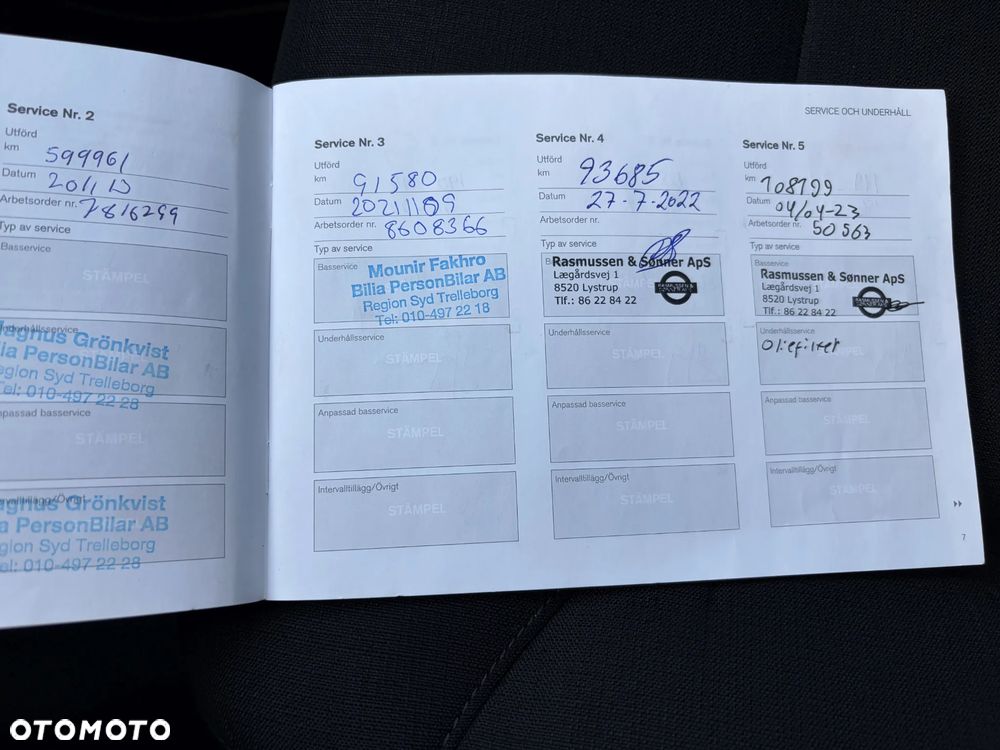 Service Nr. 2
Utförd
km 599961
Datum
Arbetsorder nr. 7816299
Typ av service
Basservice
STÄMPEL
Underhållsservice
Magnus Grönkvist
Bilia PersonBilar AB
Region Syd Trelleborg
Tel: 010-497 22 28
Anpassad basservice
STÄMPEL
Intervalltillägg/Övrigt
Magnus Grönkvist
Bilia PersonBilar AB
Region Syd Trelleborg
Tel: 010-497 22 28
SERVICE OCH UNDERHÅLL
Service Nr. 3
Utförd
km 91580
Datum 20211109
Arbetsorder nr. 8608366
Typ av service
Basservice
Mounir Fakhro
Bilia PersonBilar AB
Region Syd Trelleborg
Tel: 010-497 22 18
Underhållsservice
STÄMPEL
Anpassad basservice
STÄMPEL
Intervalltillägg/Övrigt
STÄMPEL
Service Nr. 4
Utförd
km 93685
Datum 27-7-2022
Arbetsorder nr.
Typ av service
Rasmussen & Sønner ApS
Lægårdsvej 1
8520 Lystrup
Tlf.: 86 22 84 22
RASMUSSEN &
SØNNER APS
Underhållsservice
STÄMPEL
Anpassad basservice
STÄMPEL
Intervalltillägg/Övrigt
STÄMPEL
Service Nr. 5
Utförd
km 108199
Datum 04/04-23
Arbetsorder nr. 50563
Typ av service
Basservice
Rasmussen & Sønner ApS
Lægårdsvej 1
8520 Lystrup
Tlf.: 86 22 84 22
RASMUSSEN &
SØNNER APS
Underhållsservice
Oliefilter
Anpassad basservice
STÄMPEL
Intervalltillägg/Övrigt
STÄMPEL
7
OTOMOTO